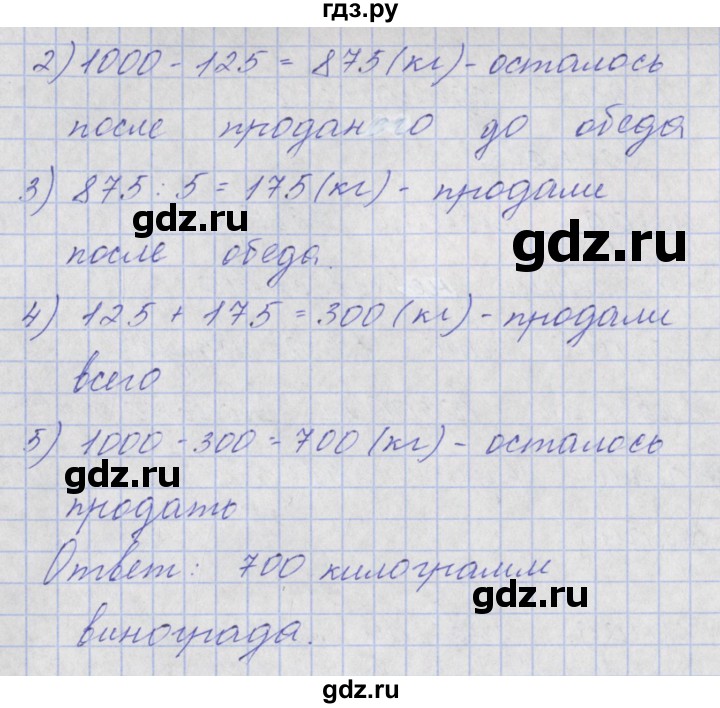 гдз.ру
2) 1000 - 125 = 875 (кг) - осталось
после проданого до обеда
3) 875 : 5 = 175 (кг) - продали
gdz.ru
gdz.ru
после обеда.
4) 125 + 175 = 300 (кг) - продали
gdz.ru
всего
5) 1000 - 300 = 700 (кг) - осталось
gdz.ru
продать
Ответ: 700 килограмм
gdz.ru
винограда.
gdz.ru